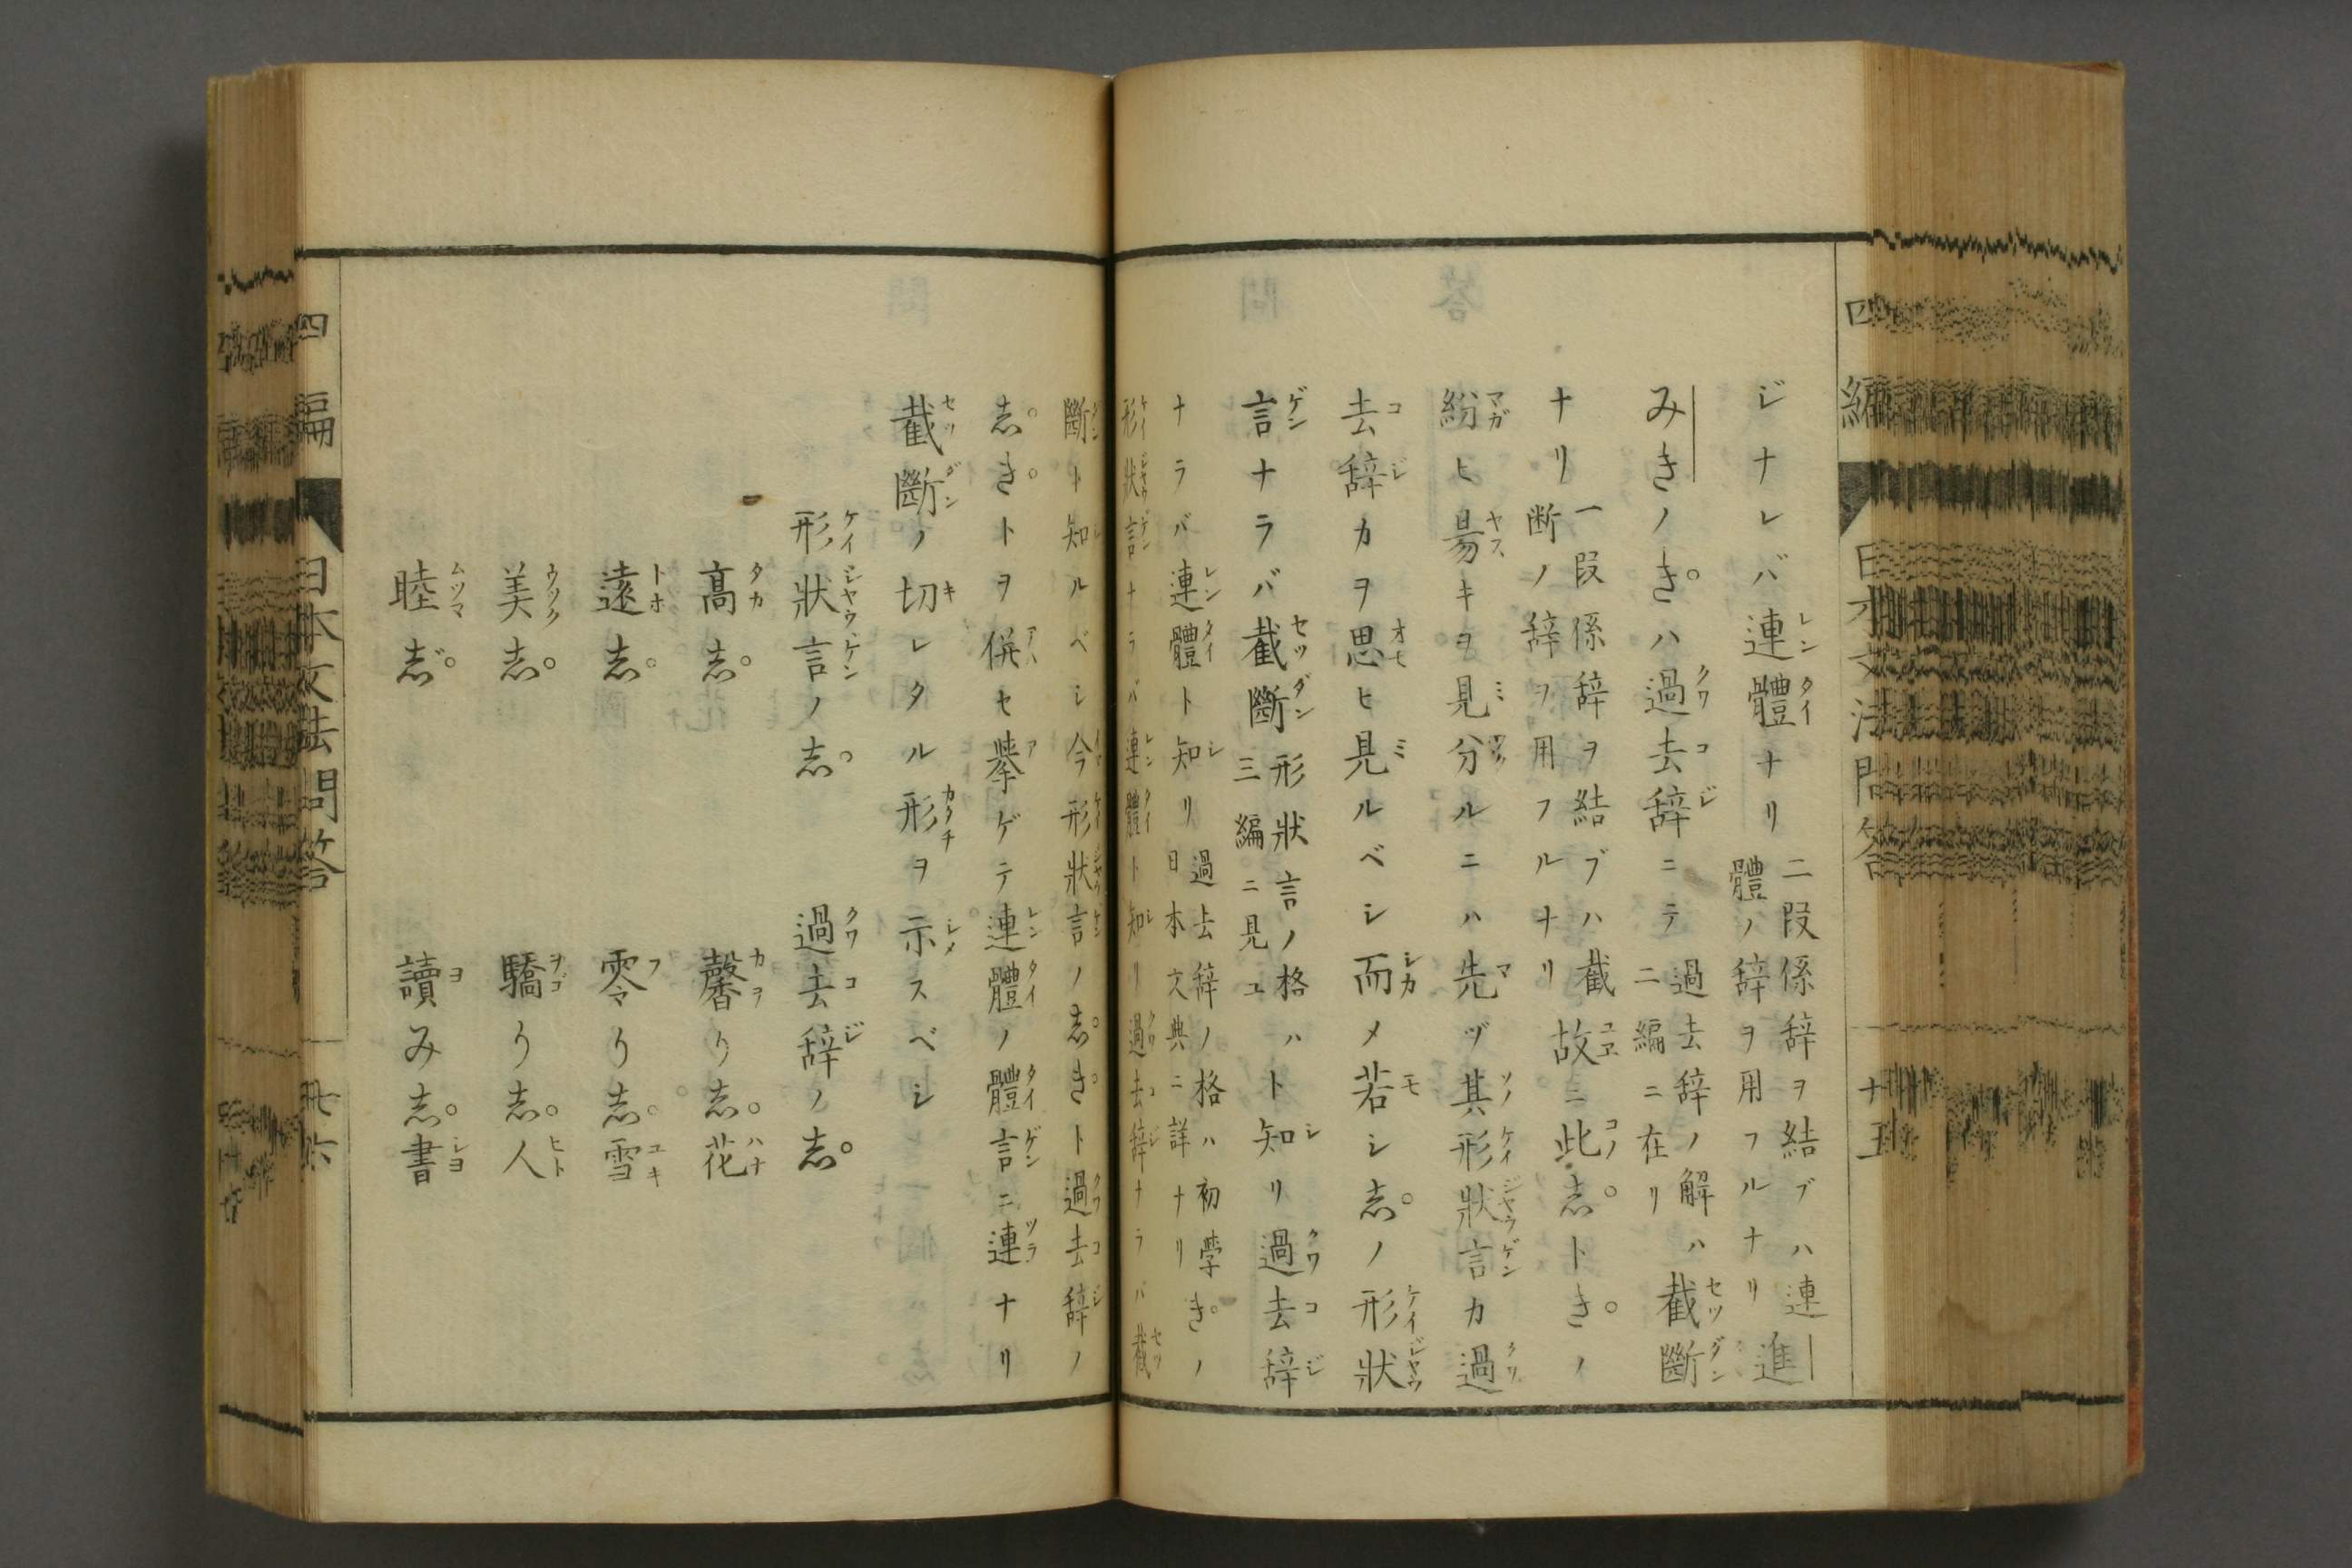 四編 日本文法問答 十五
ジナレバ連體ナリ 二段係辞ヲ結ブハ連體ノ辞ヲ用フルナリ 進
みきノきハ過去辞ニテ 過去辞ノ解ハ二編ニ在リ 截斷
ナリ 一段係辞ヲ結ブハ截断ノ辞ヲ用フルナリ 故ニ此志トきノ
紛ヒ昜キヲ見分ルニハ先ヅ其形狀言カ過
去辞カヲ思ヒ見ルベシ而メ若シ志ノ形狀
言ナラバ截斷 形狀言ノ格ハ三編ニ見ユ ト知リ過去辞
ナラバ連體ト知リ 過去辞ノ格ハ日本文典ニ詳ナリ 初学きノ
形狀言ナラバ連體ト知リ過去辞ナラバ截
斷ト知ルベシ今形狀言ノ志きト過去辞ノ
志きトヲ併セ擧ゲテ連體ノ體言ニ連ナリ
截斷ノ切レタル形ヲ示スベシ
形狀言ノ志 過去辞ノ志
髙志 馨り志花
遠志 零り志雪
美志 驕り志人
睦志゛ 讀み志書
四編 日本文法問答